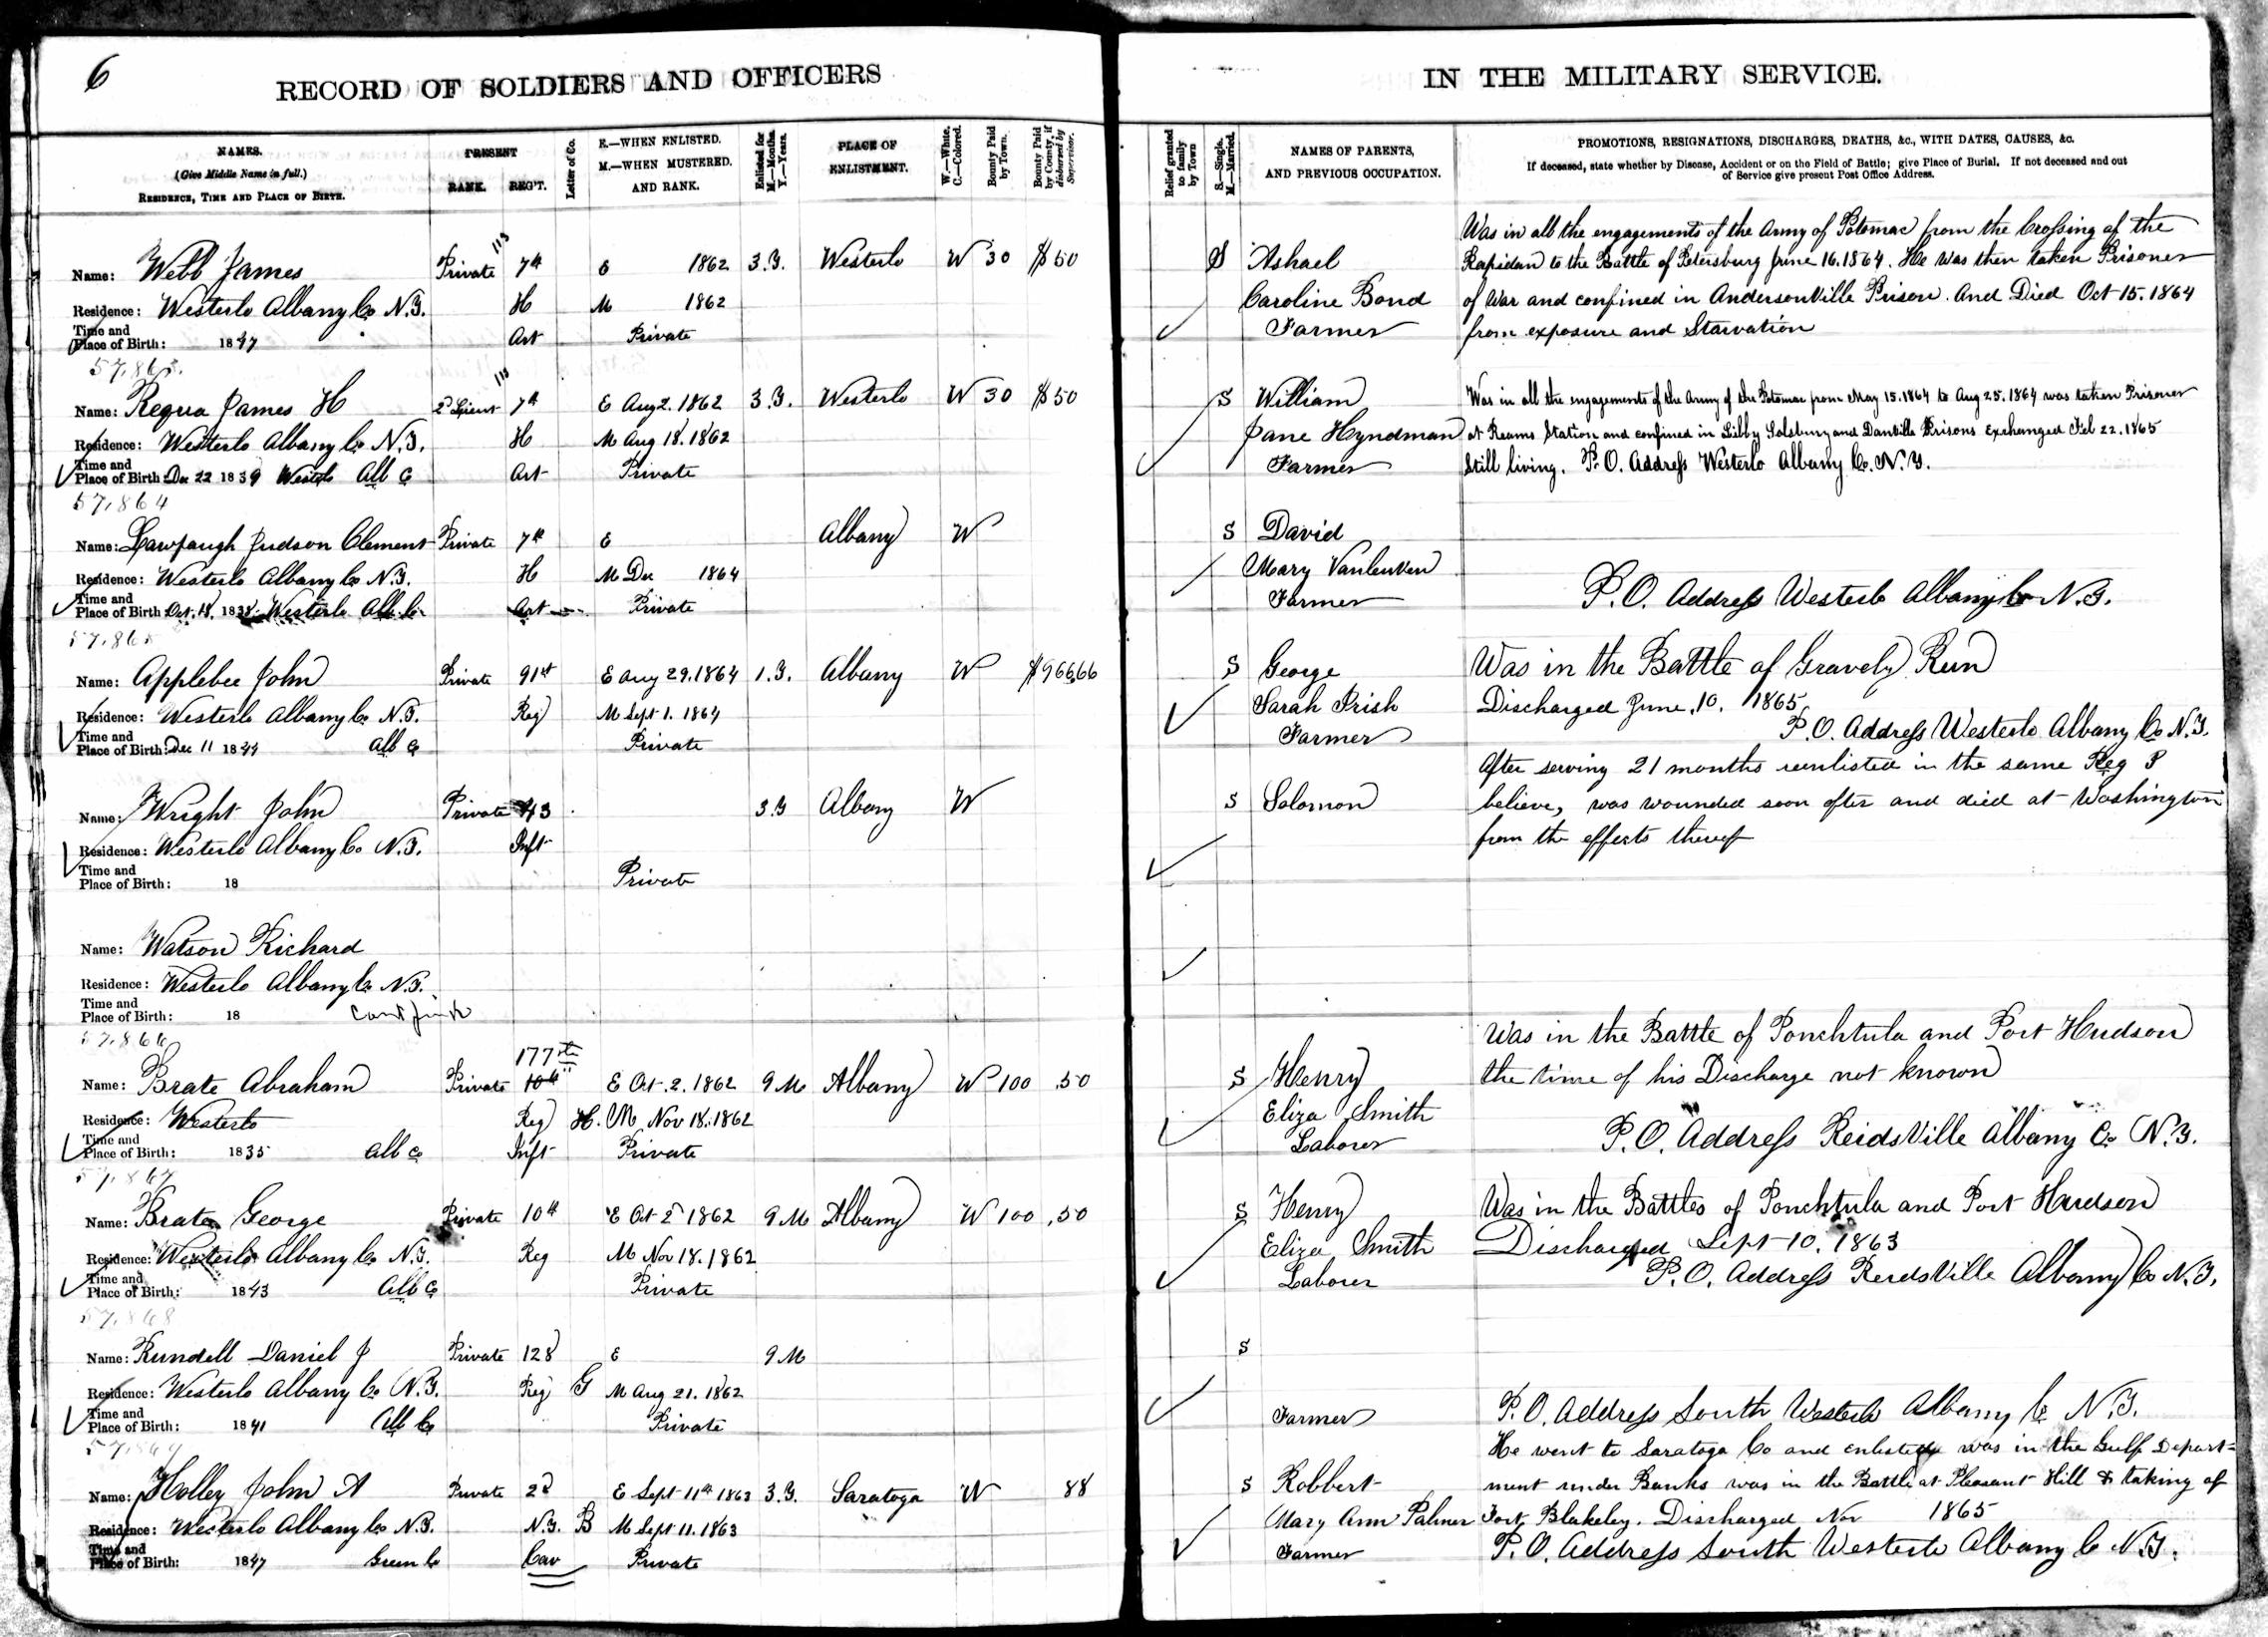 6
RECORD OF SOLDIERS AND OFFICERS
IN THE MILITARY SERVICE.
NAMES.
(Give Middle Name in full.)
RESIDENCE, TIME AND PLACE OF BIRTH.
PRESENT
RANK. REG'T.
Letter of Co.
E.—WHEN ENLISTED.
M.—WHEN MUSTERED.
AND RANK.
Enlisted for M.—Months. Y.—Years.
PLACE OF ENLISTMENT.
W.—White. C.—Colored.
Bounty Paid by Town.
Bounty Paid by County, if disbursed by Supervisor.
Relief granted to family by Town
S.—Single. M.—Married.
NAMES OF PARENTS,
AND PREVIOUS OCCUPATION.
PROMOTIONS, RESIGNATIONS, DISCHARGES, DEATHS, &c., WITH DATES, CAUSES, &c.
If deceased, state whether by Disease, Accident or on the Field of Battle; give Place of Burial. If not deceased and out
of Service give present Post Office Address.
113
Was in all the engagements of the Army of Potomac from the Crossing of the
Name: Webb James Private 7th E 1862 3.Y. Westerlo W 30 $50 S Ashael Rapidan to the Battle of Petersburg June 16.1864. He was then taken Prisoner
Residence: Westerlo Albany Co N.Y. H M 1862 Caroline Bond of War and confined in Andersonville Prison. And Died Oct 15. 1864
Time and
Place of Birth: 1847 Art Private Farmer from exposure and Starvation
57,863.
113
Name: Requa James H 2d Lieut 7th E Aug 2. 1862 3.Y. Westerlo W 30 $50 S William Was in all the engagements of the Army of the Potomac from May 15.1864 to Aug 25.1864 was taken Prisoner
Residence: Westerlo Albany Co N.Y. H M Aug 18. 1862 Jane Hyndman at Reams Station and confined in Libby Salsbury and Danville Prisons Exchanged Feb 22.1865
Time and
Place of Birth: Dec 22 1839 Westerlo Alb Co Art Private Farmer Still living. P.O. Address Westerlo Albany Co. N.Y.
57,864
Name: Lawpaugh Judson Clement Private 7th E Albany W S David
Residence: Westerlo Albany Co N.Y. H M Dec 1864 Mary Vanleuven
Time and
Place of Birth: Oct. 18, 1838 Westerlo Alb Co Art Private Farmer P.O. Address Westerlo Albany Co N.Y.
57,865
Name: Applebee John Private 91st E Aug 29.1864 1.Y. Albany W $966.66 S George Was in the Battle of Gravely Run
Residence: Westerlo Albany Co N.Y. Reg M Sept 1. 1864 Sarah Irish Discharged June 10. 1865
Time and
Place of Birth: Dec 11 1844 Alb Co Private Farmer P.O. Address Westerlo Albany Co N.Y.
After serving 21 months reenlisted in the same Reg I
Name: Wright John Private 43 3.Y Albany W S Solomon believe, was wounded soon after and died at Washington
Residence: Westerlo Albany Co N.Y. Inft from the effects thereof
Time and
Place of Birth: 18 Private
Name: Watson Richard
Residence: Westerlo Albany Co N.Y.
Time and
Place of Birth: 18 Cant find
57,866
177th
Was in the Battle of Ponchtula and Port Hudson
Name: Brate Abraham Private 10th E Oct. 2. 1862 9 M Albany W 100 .50 S Henry the time of his Discharge not known
Residence: Westerlo Reg H. M Nov 18. 1862 Eliza Smith
Time and
Place of Birth: 1835 Alb Co Inft Private Laborer P.O. Address Reidsville Albany Co N.Y.
57,867
Name: Brate George Private 10th E Oct 2 1862 9 M Albany W 100 .50 S Henry Was in the Battles of Ponchtula and Port Hudson
Residence: Westerlo Albany Co N.Y. Reg M Nov 18. 1862 Eliza Smith Discharged Sept 10. 1863
Time and
Place of Birth: 1843 Alb Co Private Laborer P.O. Address Reidsville Albany Co N.Y.
57,868
Name: Rundell Daniel J Private 128 E 9 M S
Residence: Westerlo Albany Co N.Y. Reg G M Aug 21. 1862
Time and
Place of Birth: 1841 Alb Co Private Farmer P.O. Address South Westerlo Albany Co N.Y.
57,869
He went to Saratoga Co and enlisted was in the Gulf Depart=
Name: Holley John A Private 2d E Sept 11th 1863 3.Y. Saratoga W 88 S Robbert ment under Banks was in the Battle at Pleasant Hill & taking of
Residence: Westerlo Albany Co N.Y. N.Y. B M Sept 11. 1863 Mary Ann Palmer Fort Blakeley. Discharged Nov 1865
Time and
Place of Birth: 1847 Green Co Cav Private Farmer P.O. Address South Westerlo Albany Co N.Y.